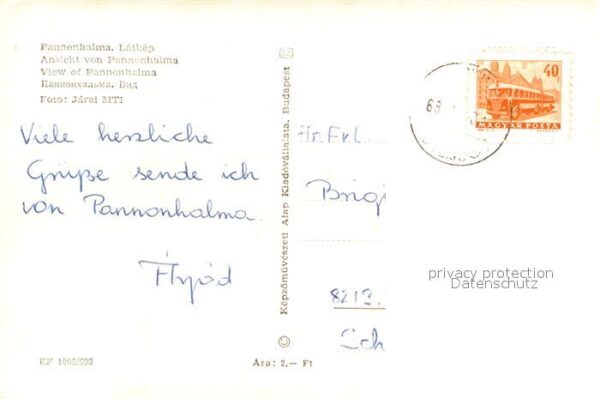 Pannonhalma, Látkép
Ansicht von Pannonhalma
View of Pannonhalma
Паннонхальма, Вид
Foto: Járai MTI
Viele herzliche
Grüße sende ich
von Pannonhalma.
Képzőművészeti Alap Kiadóvállalata, Budapest
40
MAGYAR POSTA
69
Frl.
Brigi
8213
Sch
privacy protection
Datenschutz
EF 1005/693
Ára: 2.— Ft